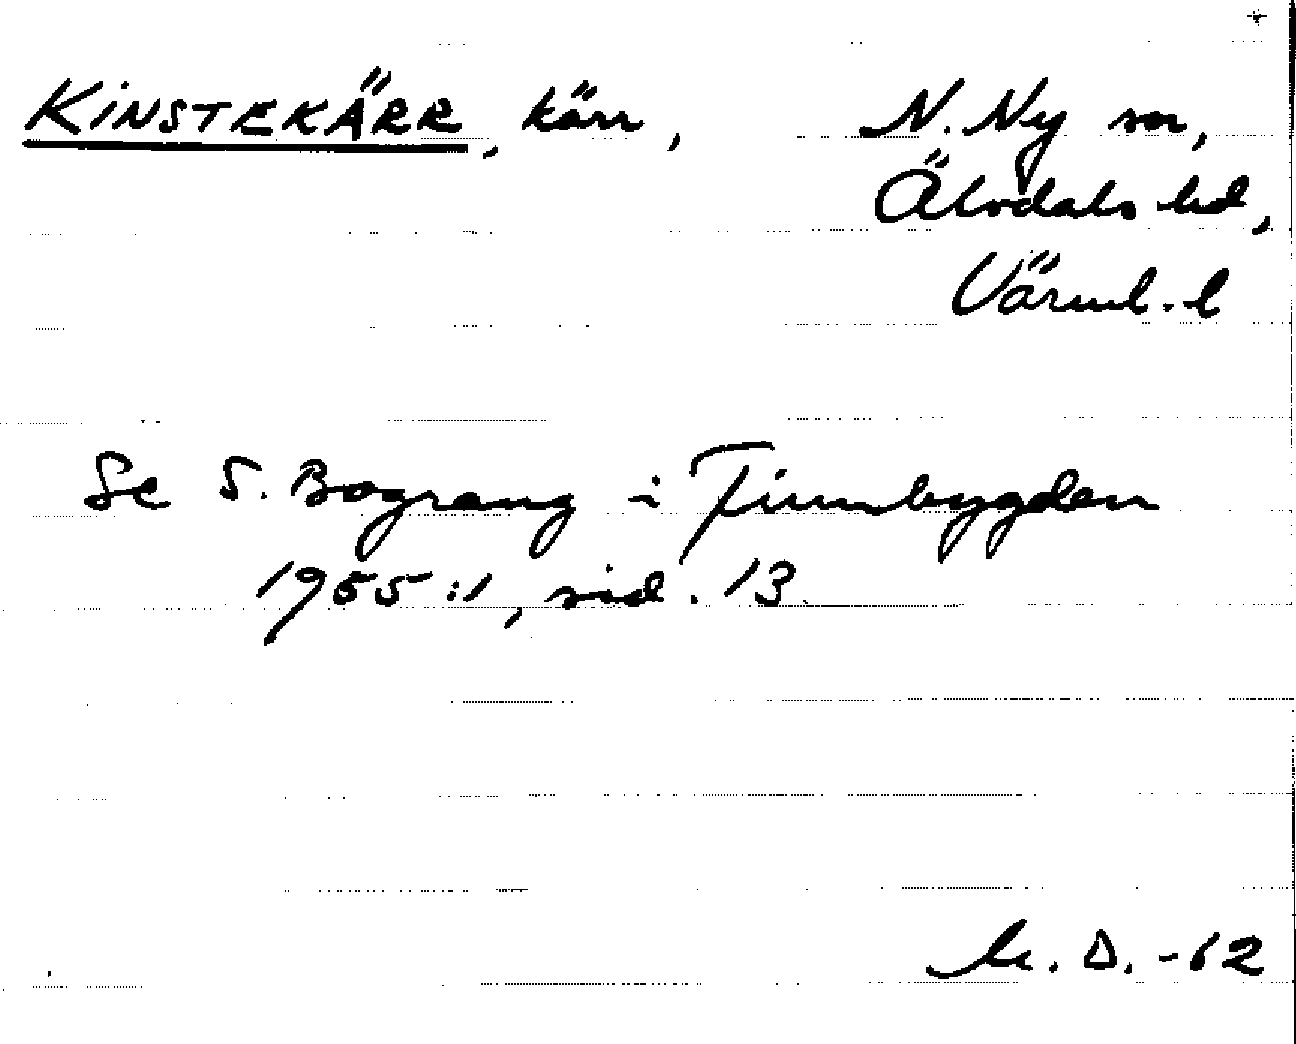 KINSTEKÄRR, kärr, N. Ny sn,
Älvdals hd,
Värml. l
Se S. Bograng i Finnbygden
1955:1, sid. 13.
M. D. -62